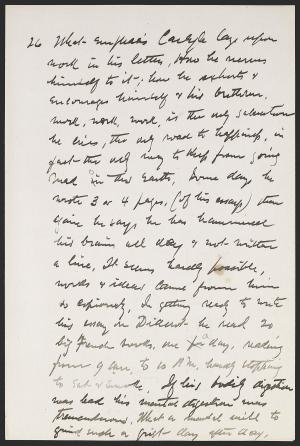 26 What emphasis Carlyle lays upon
work in his letters, How he nerves
himself to it; how he exhorts &
encourages himself & his brethren.
Work, work, work, is the only salvation
he cries, the only road to happiness, in
fact the only way to keep from going
mad in this earth, Some days he
wrote 3 or 4 pages, (of his essays) then
again he says he has hammered
his brains all day & not written
a line, It seems hardly possible,
words & ideas came from him
so copiously, In getting ready to write
his essay on Diderot he read 20
big French books, one per day, reading
from 9 am, to 10 P.M. hardly stopping
to eat & smoke, If his bodily digestion
was bad his mental digestion was
tremendous. What a mental mill to
grind such a grist day after day,